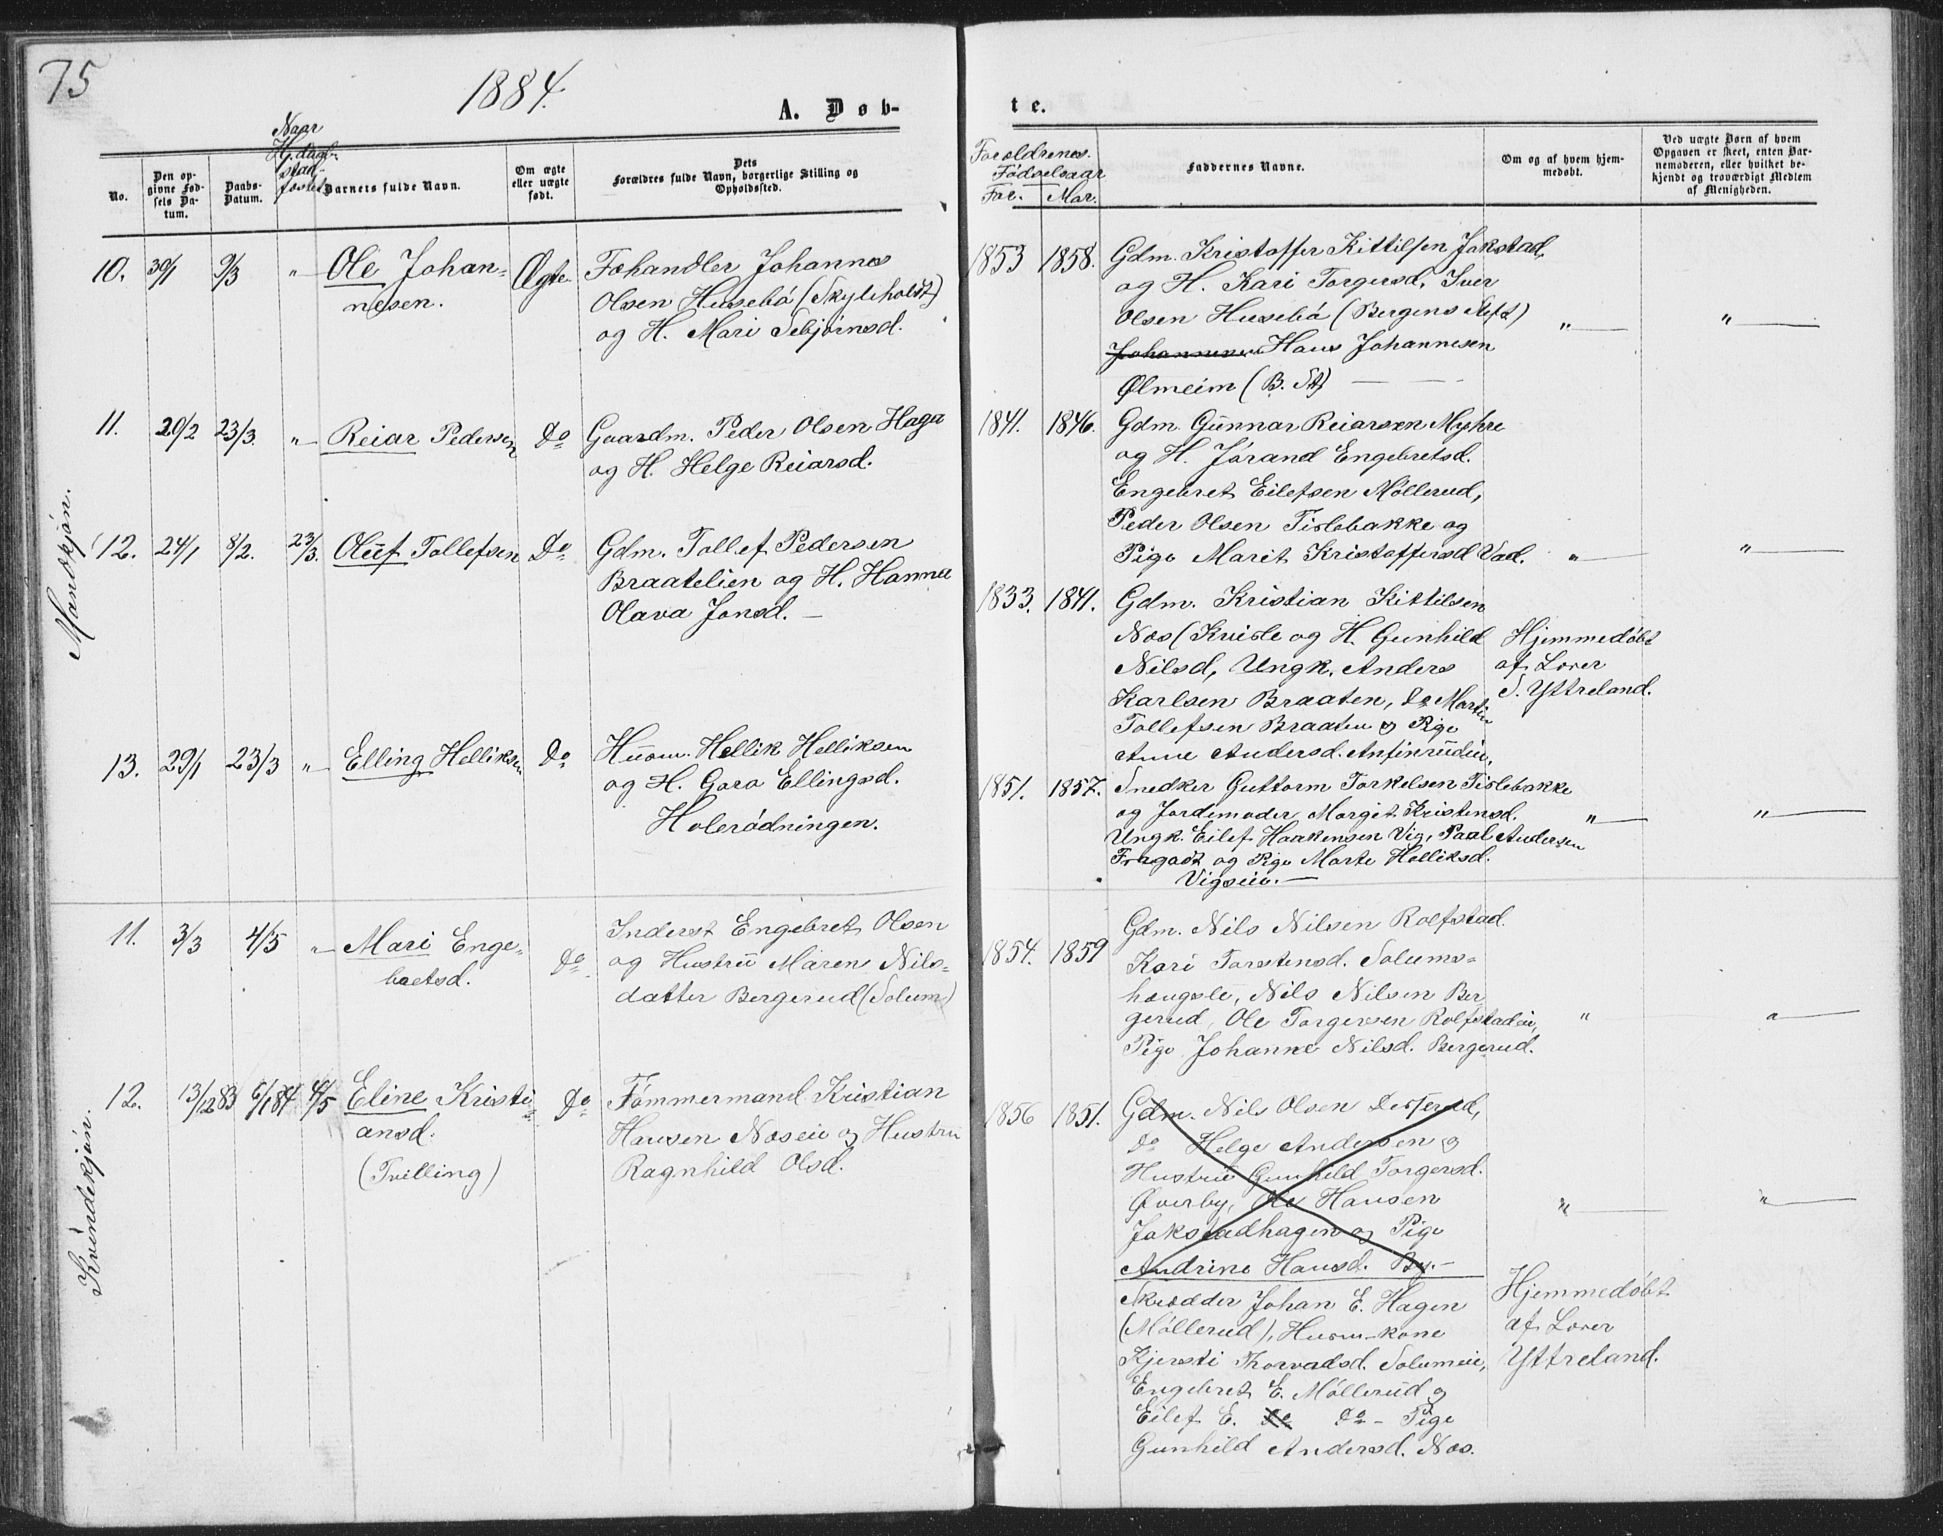 75
1884.
A. Døb-
te.
Naar
Hj.døbt
stad-
fæstet
No.
Den op-
givne Fød-
sels Da-
tum.
Daabs-
Datum.
Barnets fulde Navn.
Om ægte
eller uægte
født.
Dets
Forældres fulde Navn, borgerlige Stilling og
Opholdssted.
Forældrenes
Fødselsaar
Far. Mor.
Faddernes Navne.
Om og af hvem hjem-
medøbt.
Ved uægte Børn af hvem
Opgaven er skeet, enten Bar-
nemoderen, eller hvilket be-
kjendt og troværdigt Medlem
af Menigheden.
Mandkjøn.
10. 30/1 9/3 " Ole Johan-
nesen.
Ægte
Fæhandler Johannes
Olsen Husebø (Skyleholdt)
og H. Mari Sebjørnsd.
1853 1858.
Gdm. Kristoffer Kittilsen Jokstad,
og H. Kari Torgersd, Iver
Olsen Husebø (Bergens Stift)
Johannesen Hans Johannesen
Ølmeim (B. St)
" "
11. 20/2 23/3. " Reiar Pedersen Do
Gaardm. Peder Olsen Haga
og H. Helge Reiarsd.
1841. 1846.
Gdm. Gunnar Reiarsen Myhre
og H. Jørand Engebretsd.
Engebret Eilefsen Møllerud,
Peder Olsen Tislebakke og
Pige Marit Kristoffersd Vad.
" "
12. 24/1 8/2. 23/3. Oluf Tollefsen Do
Gdm. Tollef Pedersen
Braatelien og H. Hanna
Olava Jonsd. —
1833. 1841.
Gdm. Kristian Kittilsen
Næs (Kvisle og H. Gunhild
Nilsd, Ungk. Anders
Karlsen Braaten, Do Martin
Tollefsen Braaten og Pige
Anne Andersd. Anfinrudeie,
Hjemmedøbt
af Lærer
S. Yttreland.
13. 29/1 23/3 " Elling Helliksen Do
Husm. Hellik Helliksen
og H. Goro Ellingsd.
Holerødningen.
1851. 1857.
Snedker Guttorm Torkelsen Tislebakke
og Jordemoder Margit Kristensd.
Ungk. Eilef Haakensen Vig, Paal Andersen
og Pige Marte Helliksd.
Vigseie. —
" "
Kvindekjøn.
11. 3/3 4/5 " Mari Enge-
bretsd.
Do
Inderst Engebret Olsen
og Hustru Maren Nils-
datter Bergerud (Solum)
1854. 1859
Gdm. Nils Nilsen Rolfstad.
Kari Torstensd. Solums-
hougsle, Nils Nilsen Ber-
gerud, Ole Torgersen Rolfstadeie,
Pige Johanne Nilsd. Bergerud.
" "
12. 13/12 83 6/1 84 4/5 Eline Kristi-
ansd.
(Tvilling)
Do
Tømmermand Kristian
Hansen Næseie og Hustru
Ragnhild Olsd.
1856 1851.
Gdm. Nils Olsen Desserud,
Do Helge Andersen og
Hustru Gunhild Torgersd.
Øverby, Ole Hansen
Jokstadhagen og Pige
Andrine Hansd. By.—
" "
Skrædder Johan E. Hagen
(Møllerud), Husm-kone
Kjersti Thorvadsd. Solumeie,
Engebret E. Møllerud og
Eilef E. Do Do - Pige
Gunhild Andersd. Næs.
Hjemmedøbt
af Lærer
Yttreland.